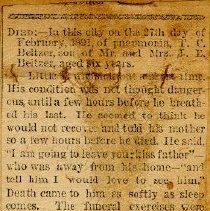 DIED:—In this city on the 27th day of
February, 1891, of pneumonia, T. C.
Beitzer, son of Mr. and Mrs. J. E.
Beitzer, aged six years.
Little
His condition was not thought danger-
ous, until a few hours before he breath-
ed his last. He seemed to think he
would not recover and told his mother
so a few hours before he died. He said,
"I am going to leave you, kiss father"
who was away from his home—"and
tell him I would love to see him."
Death came to him as softly as sleep
comes. The funeral exercises were